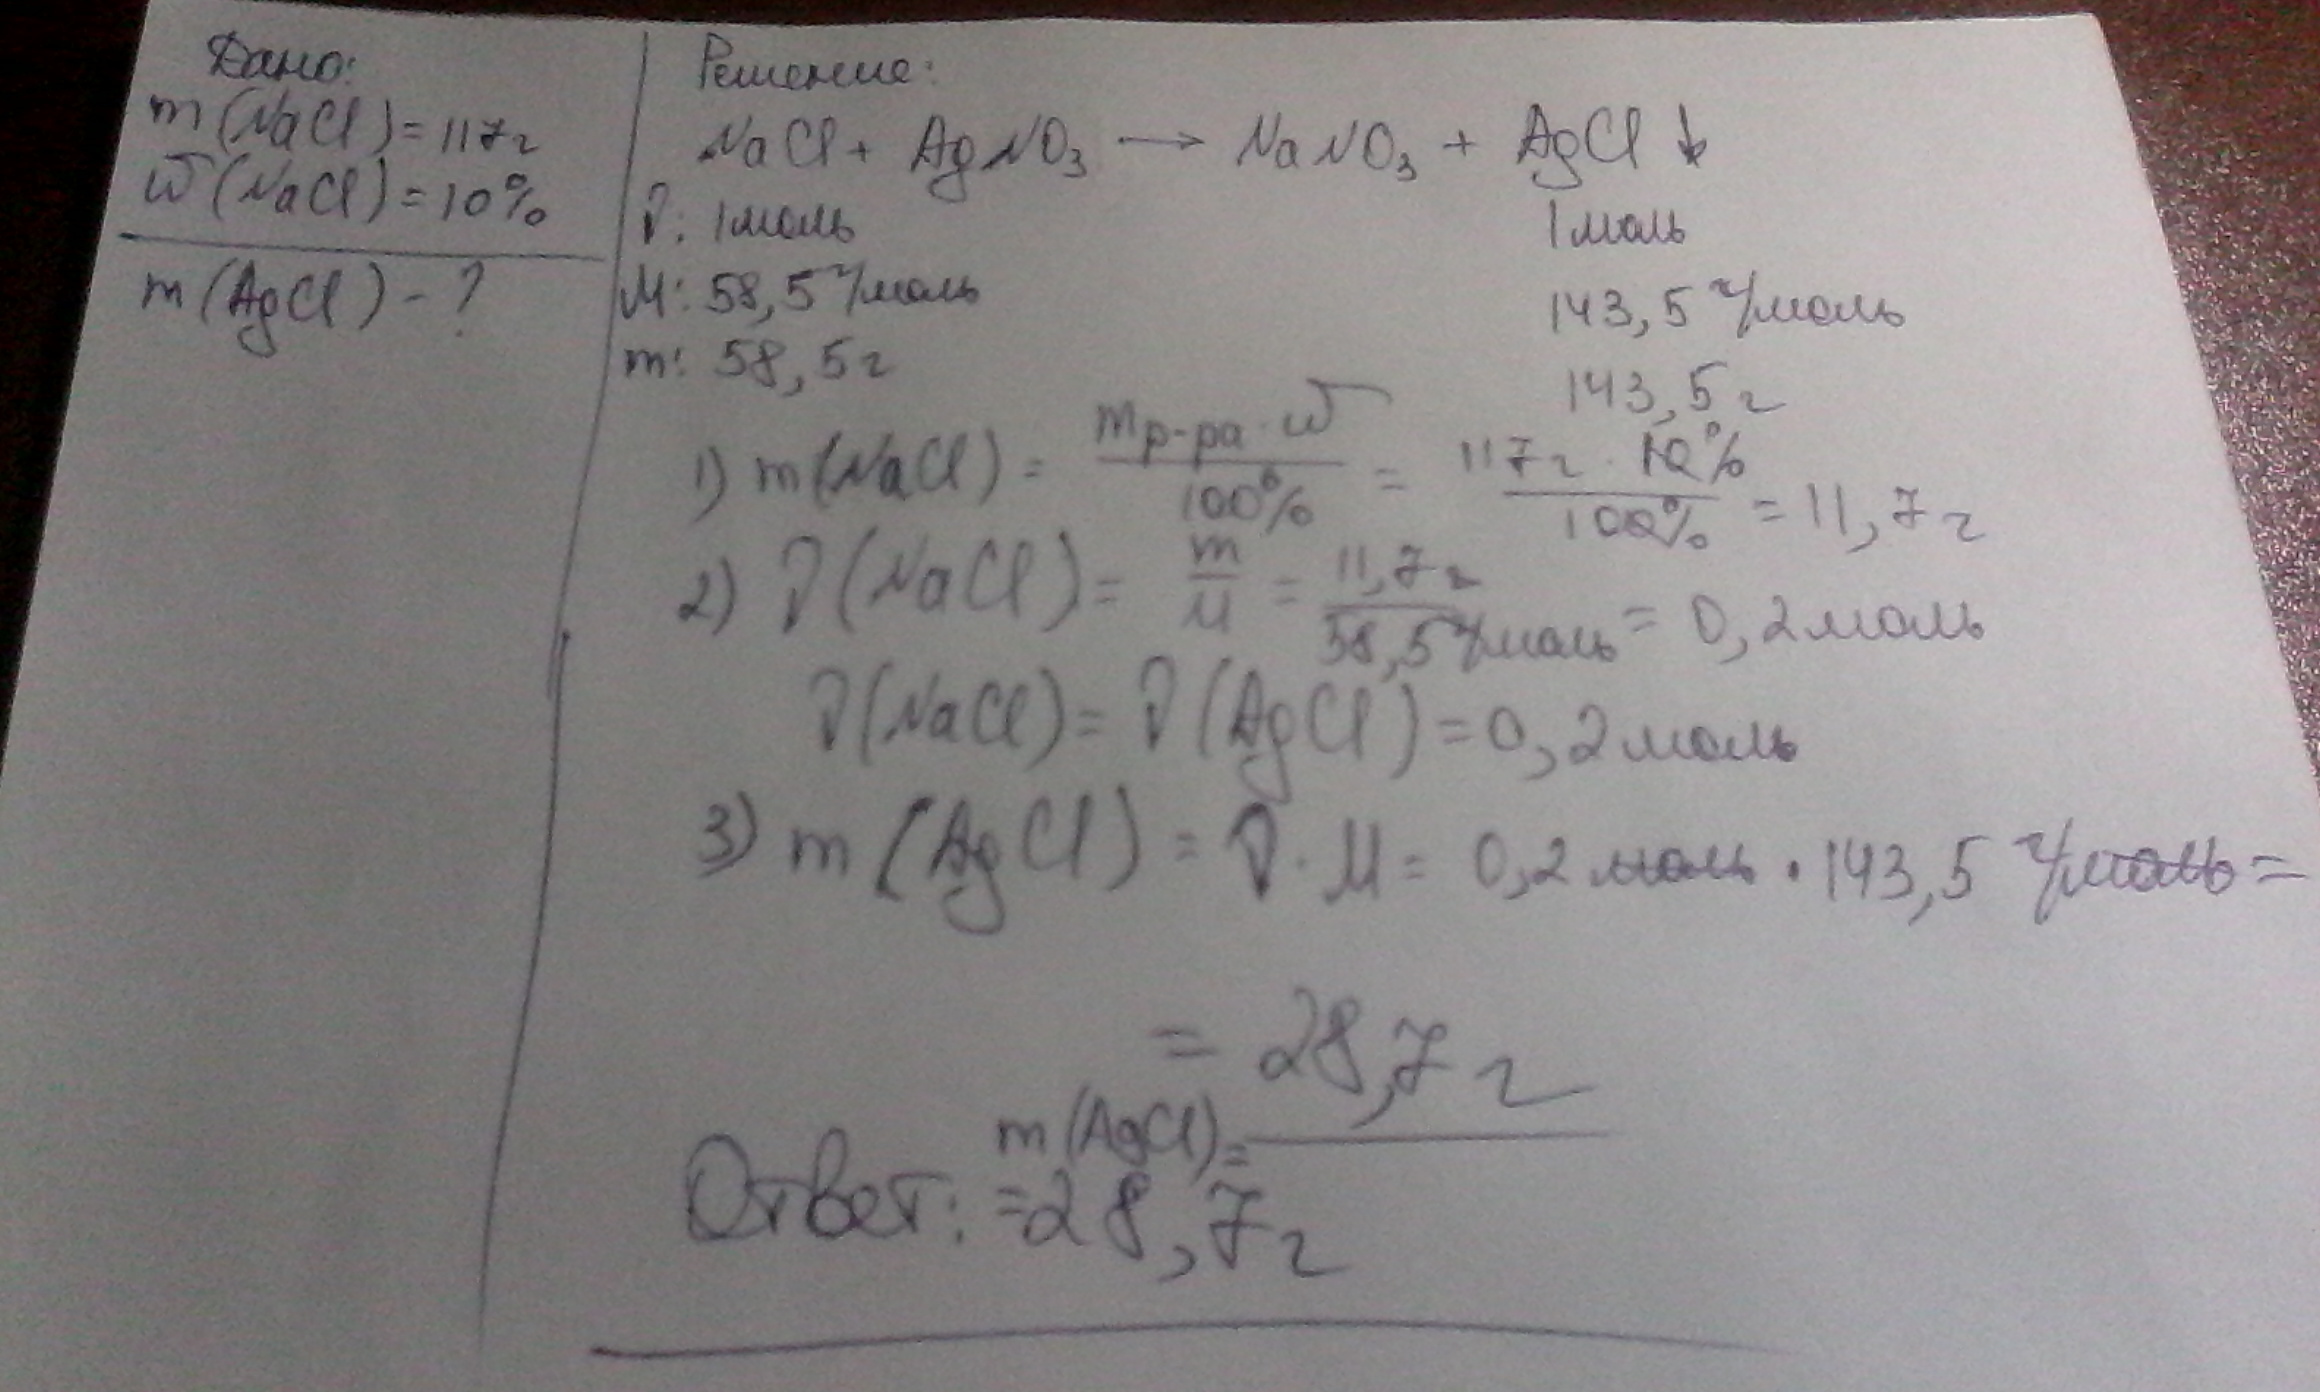 Дано:
m(NaCl)=117г
ω(NaCl)=10%
m(AgCl)-?
Решение:
NaCl + AgNO₃ → NaNO₃ + AgCl↓
ν: 1моль 1моль
M: 58,5г/моль 143,5г/моль
m: 58,5г 143,5г
1) m(NaCl) = mр-ра·ω/100% = 117г·10%/100% = 11,7г
2) ν(NaCl) = m/M = 11,7г/58,5г/моль = 0,2моль
ν(NaCl) = ν(AgCl) = 0,2моль
3) m(AgCl) = ν·M = 0,2моль·143,5г/моль =
= 28,7г
Ответ: m(AgCl)=
=28,7г